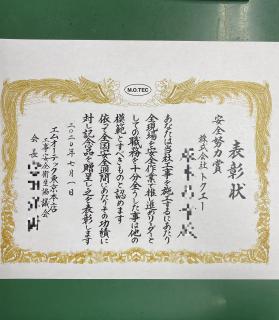 M.O.TEC
表彰状
安全努力賞
株式会社トクエー
あなたは当社工事を施工するにあたり
全現場を安全作業で推し進めリーダーと
しての職務を十分全うした事は他の
模範とすべきものと認めます
依って全国安全週間にあたりその功績に
対し記念品を贈呈し之を表彰します
二〇二〇年七月一日
エムオーテック東京本店
工事安全衛生協議会
会長